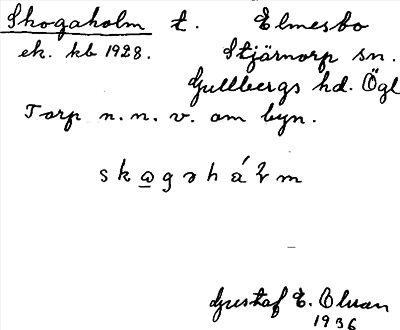 Skogaholm t. Elmesbo
ek. kb 1928. Stjärnorp sn.
Gullbergs hd. Ögl
Torp n.n.v. om byn.
skωgəháɫm
Gustaf E. Olsson
1936